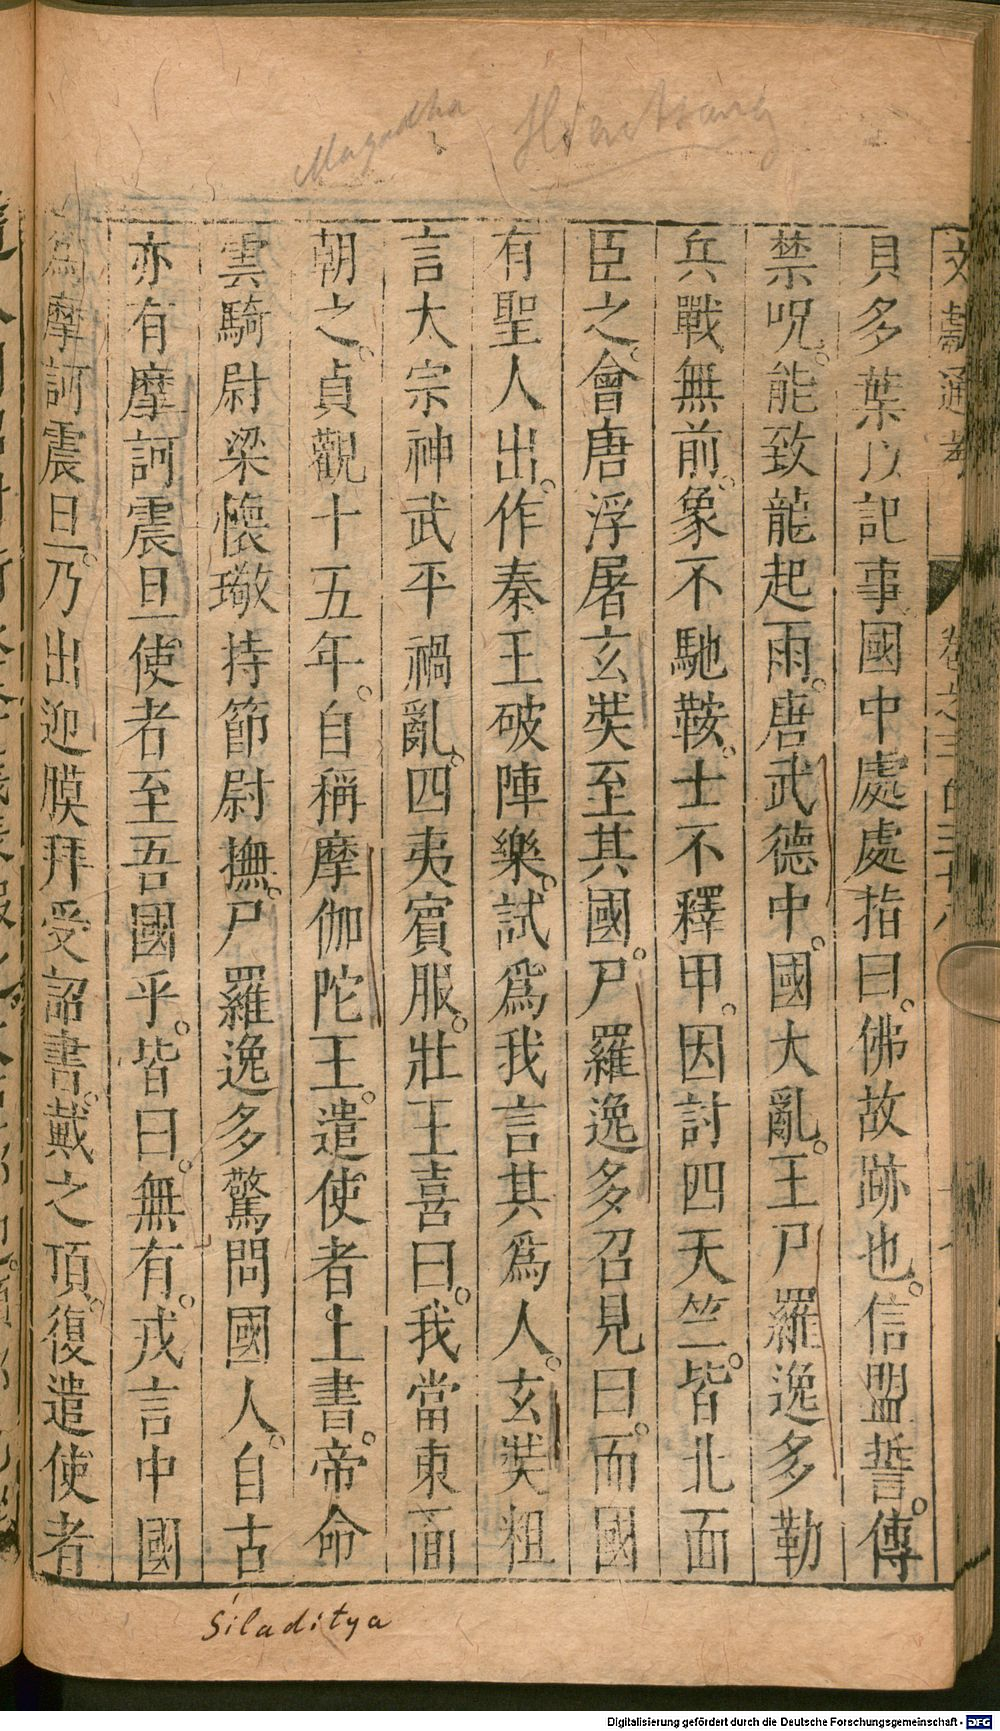 Magadha
Hiuentsang
文獻通考
卷之三百三十八
貝多葉以記事國中處處指曰佛故跡也信盟誓傳
禁呪能致龍起雨唐武德中國大亂王尸羅逸多勒
兵戰無前象不馳鞍士不釋甲因討四天竺皆北面
臣之會唐浮屠玄奘至其國尸羅逸多召見曰而國
有聖人出作秦王破陣樂試爲我言其爲人玄奘粗
言太宗神武平禍亂四夷賓服壯王喜曰我當東面
朝之貞觀十五年自稱摩伽陀王遣使者上書帝命
雲騎尉梁懷璥持節尉撫尸羅逸多驚問國人自古
亦有摩訶震旦使者至吾國乎皆曰無有戎言中國
爲摩訶震旦乃出迎膜拜受詔書戴之頂復遣使者
Śiladitya
Digitalisierung gefördert durch die Deutsche Forschungsgemeinschaft - DFG